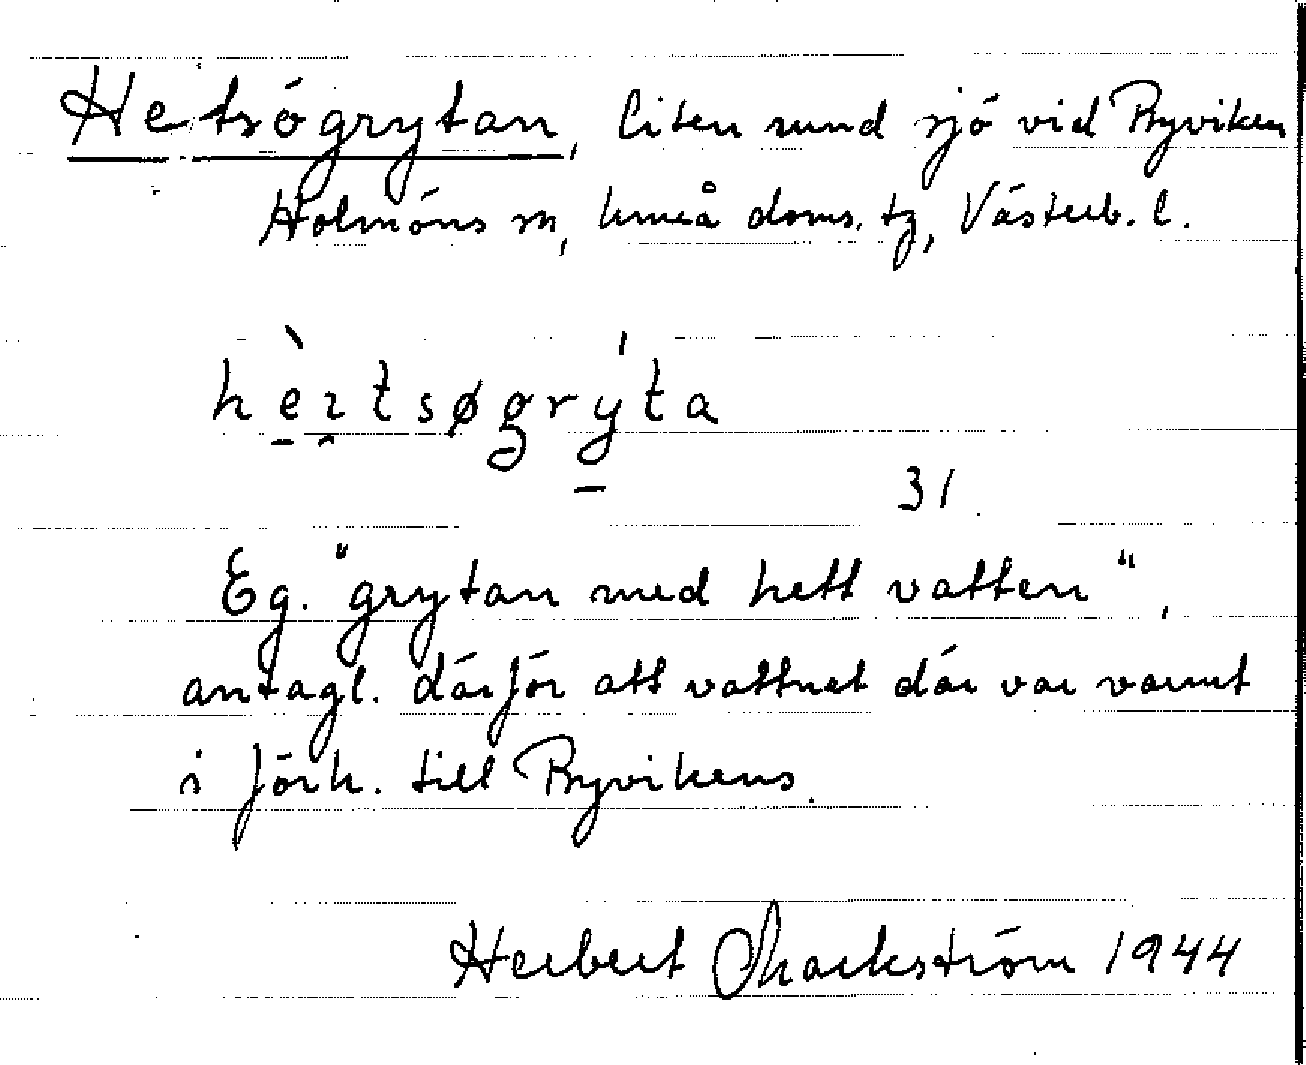 Hetsögrytan, liten rund sjö vid Byviken
Holmöns sn, Umeå doms. tg, Västerb. l.
hèrtsøgrýta
31.
Eg. "grytan med hett vatten",
antagl. därför att vattnet där var varmt
i förh. till Byvikens.
Herbert Markström 1944